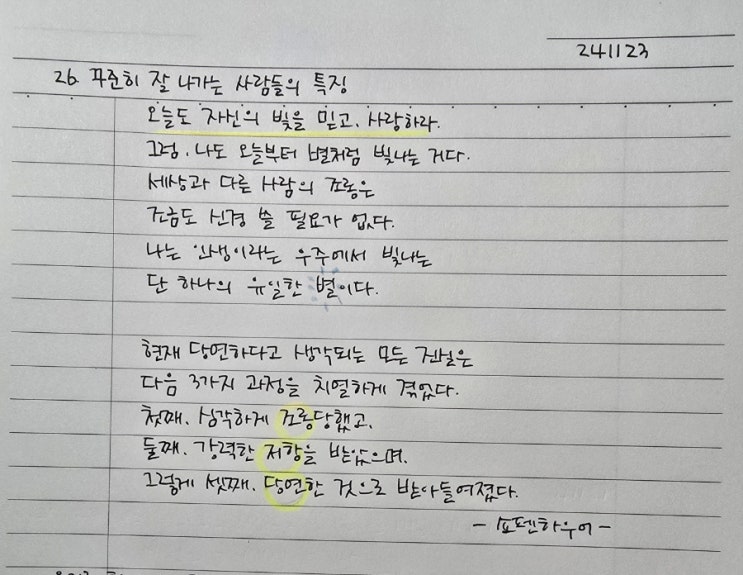 241123
26. 꾸준히 잘 나가는 사람들의 특징
오늘도 자신의 빛을 믿고, 사랑하라.
그럼, 나도 오늘부터 별처럼 빛나는 거다.
세상과 다른 사람의 조롱은
조금도 신경 쓸 필요가 없다.
나는 인생이라는 우주에서 빛나는
단 하나의 유일한 별이다.
현재 당연하다고 생각되는 모든 진실은
다음 3가지 과정을 치열하게 겪었다.
첫째, 심각하게 조롱당했고,
둘째, 강력한 저항을 받았으며,
그렇게 셋째, 당연한 것으로 받아들여졌다.
- 쇼펜하우어 -